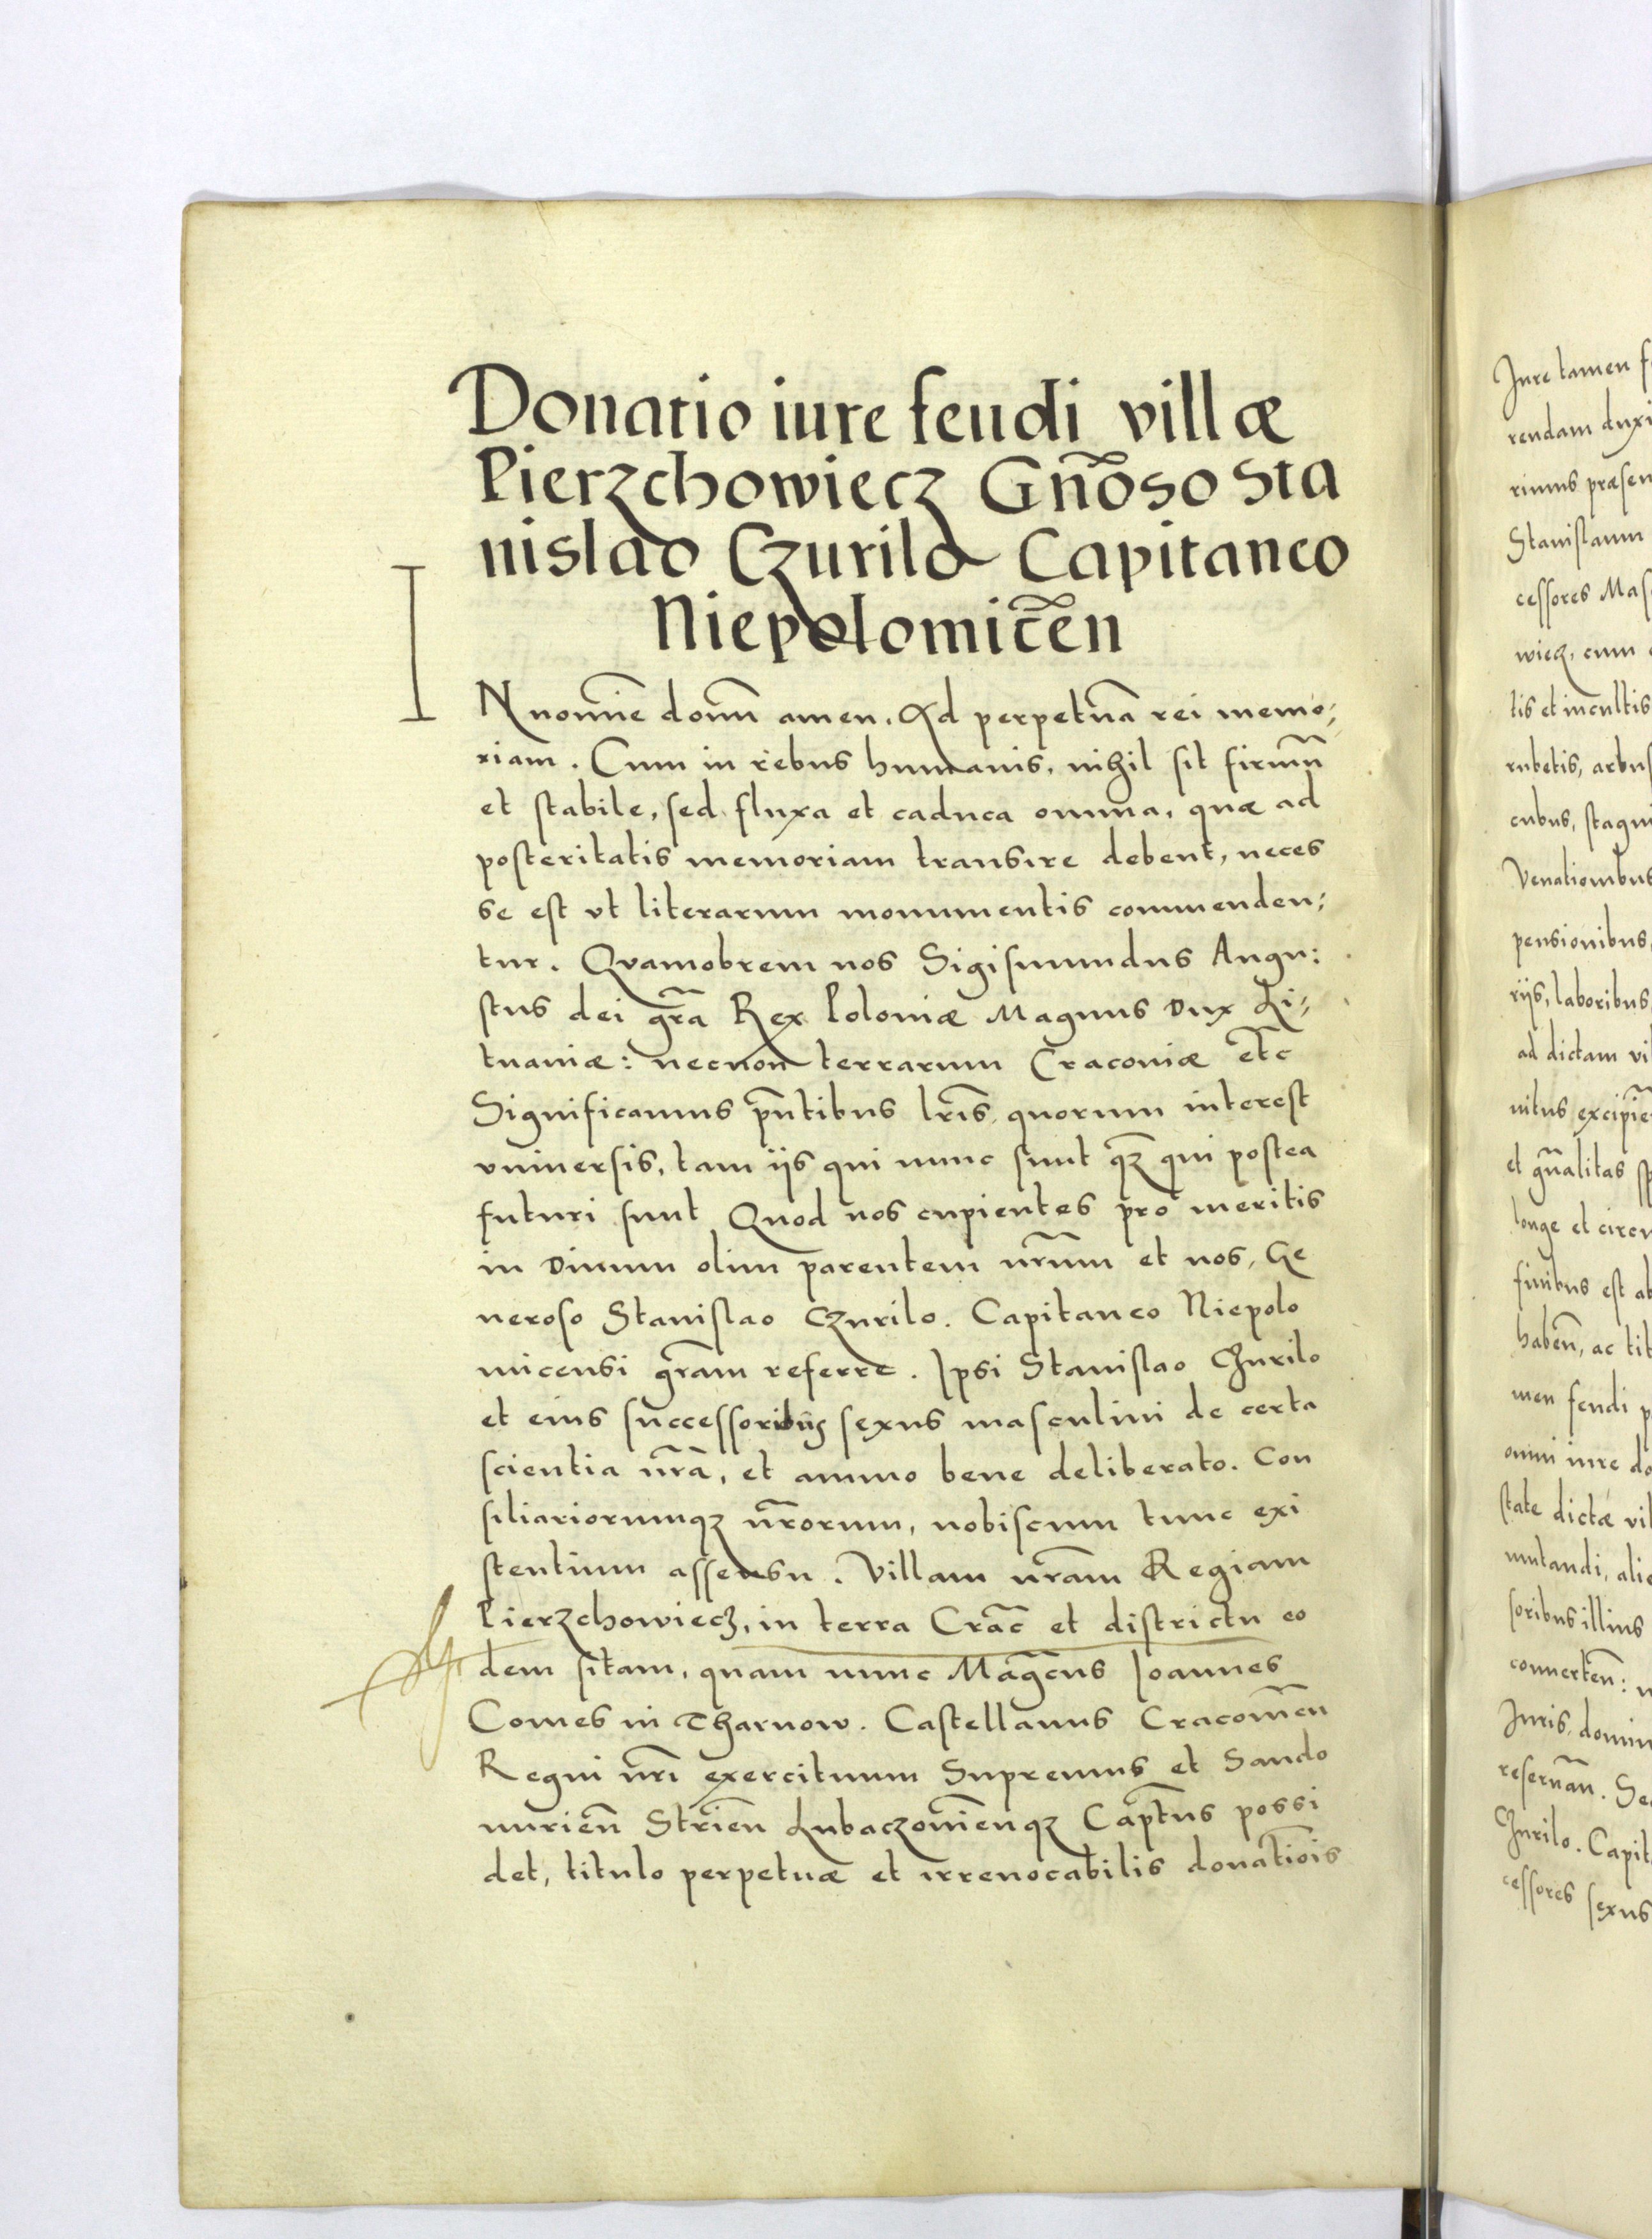 Donatio iure feudi villæ
Pierzchowiecz Gñoso Sta
nislao Czurilo Capitaneo
Niepolomiceñ
IN nomine domini amen. Ad perpetuã rei memo,
riam. Cum in rebus humanis, nihil sit firmũ
et stabile, sed fluxa et caduca omnia, quæ ad
posteritatis memoriam transire debent, neces
se est vt literarum monumentis commenden;
tur. Quamobrem nos Sigismundus Augu:
stus dei gr̃a Rex Poloniæ Magnus Dux Li,
tuaniæ: necnon terrarum Cracoviæ et̃c
Significamus pñtibus lr̃is quorum interest
vniuersis, tam iis qui nunc sunt qz̃ qui postea
futuri sunt Quod nos cupientes pro meritis
in Diuum olim parentem nr̃um et nos, Ge
neroso Stanislao Czurilo. Capitaneo Niepolo
micensi gr̃am referre. Ipsi Stanislao Czurilo
et eius successoribus sexus masculini de certa
scientia nr̃a, et animo bene deliberato. Con
siliariorumqz nr̃orum, nobiscum tunc exi
stentium assensu. Villam nr̃am Regiam
Pierzchowiecz, in terra Crac̃ et districtu eo
dem sitam, quam nunc Mag̃cus Ioannes
Comes in Tharnow. Castellanus Cracouieñ
Regni nr̃i exercituum Supremus et Sando
mirieñ Strieñ Lubaczouieñqz Capt̃us possi
det, titulo perpetuæ et irreuocabilis donatiõis
Iure tamen
rendam duxi
rimus præsen
Stanislaum
cessores Mas
wiecz, cum
tis et incultis
rubetis, arbus
cubus, stagni
Venationibus
pensionibus,
riis, laboribus
ad dictam vi
nitus excipie
et gñalitas sp
longe et circu
finibus est ab
habeñ, ac tit
men feudi p
omni iure do
state dictæ vil
mutandi, alie
soribus illius
conuerteñ:
Iuris, domin
reseruañ. Se
Czurilo. Capit
cessores sexus